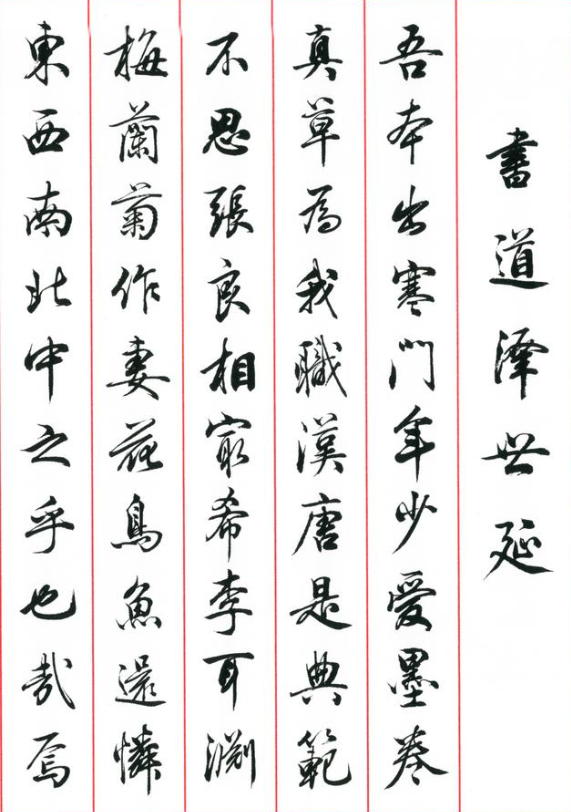 書道澤世延
吾本出寒門年少愛墨卷
真草為我職漢唐是典範
不思張良相寂希李耳淵
梅蘭菊作妻花鳥魚還憐
東西南北中之乎也哉焉